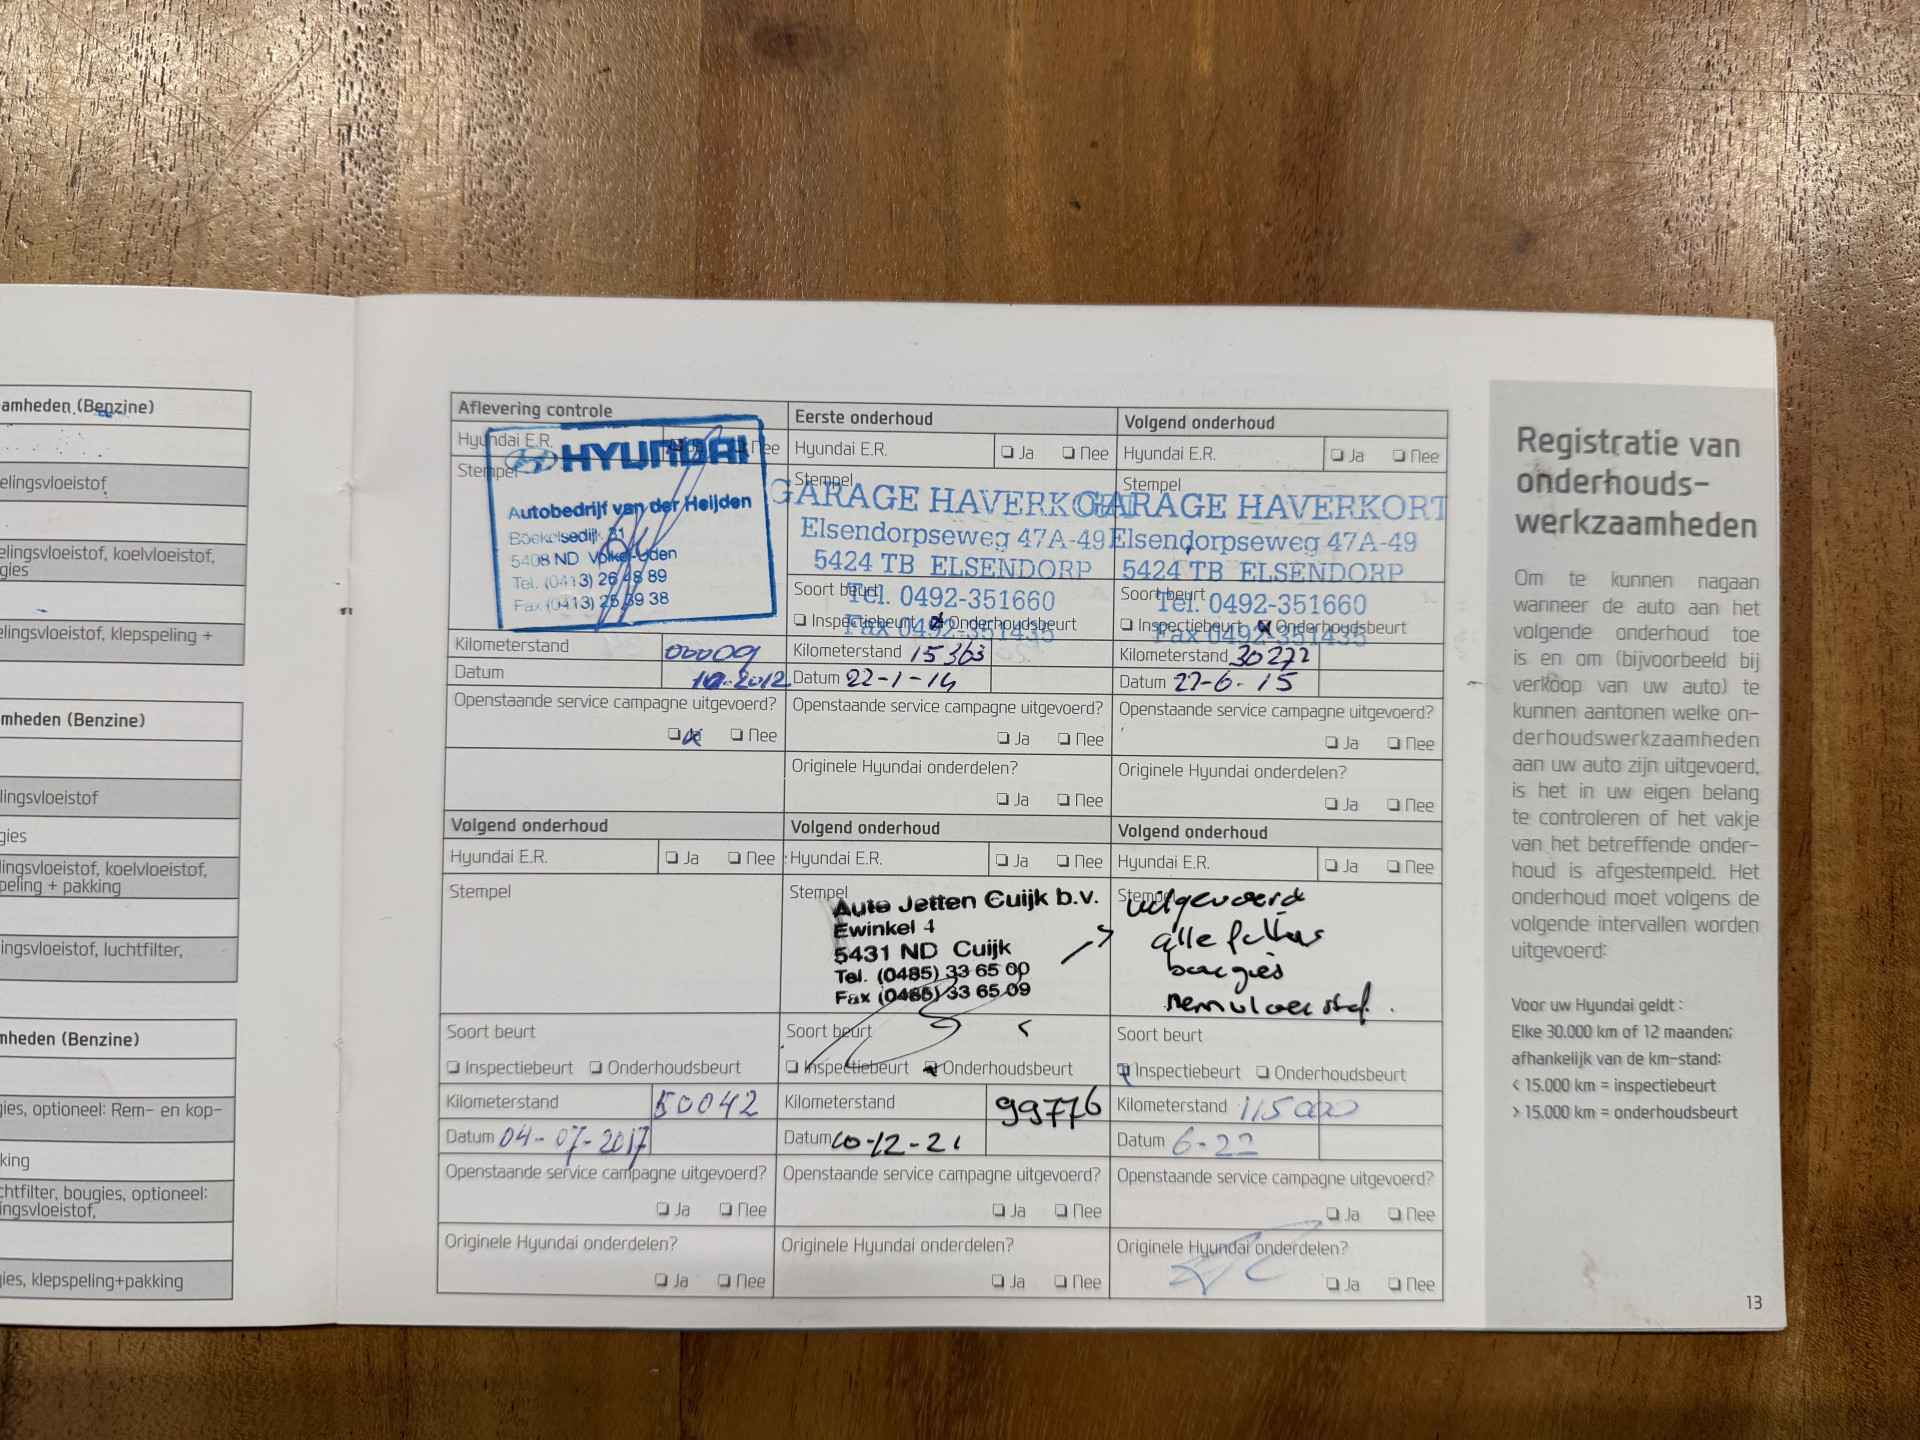 amheden (Benzine)
elingsvloeistof
elingsvloeistof, koelvloeistof,
gies
elingsvloeistof, klepspeling +
mheden (Benzine)
lingsvloeistof
gies
lingsvloeistof, koelvloeistof,
peling + pakking
ingsvloeistof, luchtfilter,
mheden (Benzine)
gies, optioneel: Rem- en kop-
king
chtfilter, bougies, optioneel:
ingsvloeistof,
gies, klepspeling+pakking
Aflevering controle
Hyundai E.R. Nee
Stempel
HYUNDAI
Autobedrijf van der Heijden
Boekelsedijk 31
5408 ND Volkel-Uden
Tel. (0413) 26 48 89
Fax (0413) 25 39 38
Kilometerstand 00009
Datum 10-2012
Openstaande service campagne uitgevoerd?
Ja Nee
Eerste onderhoud
Hyundai E.R. Ja Nee
Stempel
GARAGE HAVERKORT
Elsendorpseweg 47A-49
5424 TB ELSENDORP
Soort beurt
Tel. 0492-351660
Inspectiebeurt Onderhoudsbeurt
Fax 0492-351435
Kilometerstand 15363
Datum 22-1-14
Openstaande service campagne uitgevoerd?
Ja Nee
Originele Hyundai onderdelen?
Ja Nee
Volgend onderhoud
Hyundai E.R. Ja Nee
Stempel
GARAGE HAVERKORT
Elsendorpseweg 47A-49
5424 TB ELSENDORP
Soort beurt
Tel. 0492-351660
Inspectiebeurt Onderhoudsbeurt
Fax 0492-351435
Kilometerstand 30272
Datum 27-6-15
Openstaande service campagne uitgevoerd?
Ja Nee
Originele Hyundai onderdelen?
Ja Nee
Volgend onderhoud
Hyundai E.R. Ja Nee
Stempel
Soort beurt
Inspectiebeurt Onderhoudsbeurt
Kilometerstand 50042
Datum 04-07-2017
Openstaande service campagne uitgevoerd?
Ja Nee
Originele Hyundai onderdelen?
Ja Nee
Volgend onderhoud
Hyundai E.R. Ja Nee
Stempel
Auto Jetten Cuijk b.v.
Ewinkel 4
5431 ND Cuijk
Tel. (0485) 33 65 00
Fax (0485) 33 65 09
Soort beurt
Inspectiebeurt Onderhoudsbeurt
Kilometerstand 99776
Datum 10-12-21
Openstaande service campagne uitgevoerd?
Ja Nee
Originele Hyundai onderdelen?
Ja Nee
Volgend onderhoud
Hyundai E.R. Ja Nee
Stempel
uitgevoerd
alle filters
bougies
remvloeistof.
Soort beurt
Inspectiebeurt Onderhoudsbeurt
Kilometerstand 115000
Datum 6-22
Openstaande service campagne uitgevoerd?
Ja Nee
Originele Hyundai onderdelen?
Ja Nee
Registratie van
onderhouds-
werkzaamheden
Om te kunnen nagaan
wanneer de auto aan het
volgende onderhoud toe
is en om (bijvoorbeeld bij
verkoop van uw auto) te
kunnen aantonen welke on-
derhoudswerkzaamheden
aan uw auto zijn uitgevoerd,
is het in uw eigen belang
te controleren of het vakje
van het betreffende onder-
houd is afgestempeld. Het
onderhoud moet volgens de
volgende intervallen worden
uitgevoerd:
Voor uw Hyundai geldt :
Elke 30.000 km of 12 maanden;
afhankelijk van de km-stand:
< 15.000 km = inspectiebeurt
> 15.000 km = onderhoudsbeurt
13